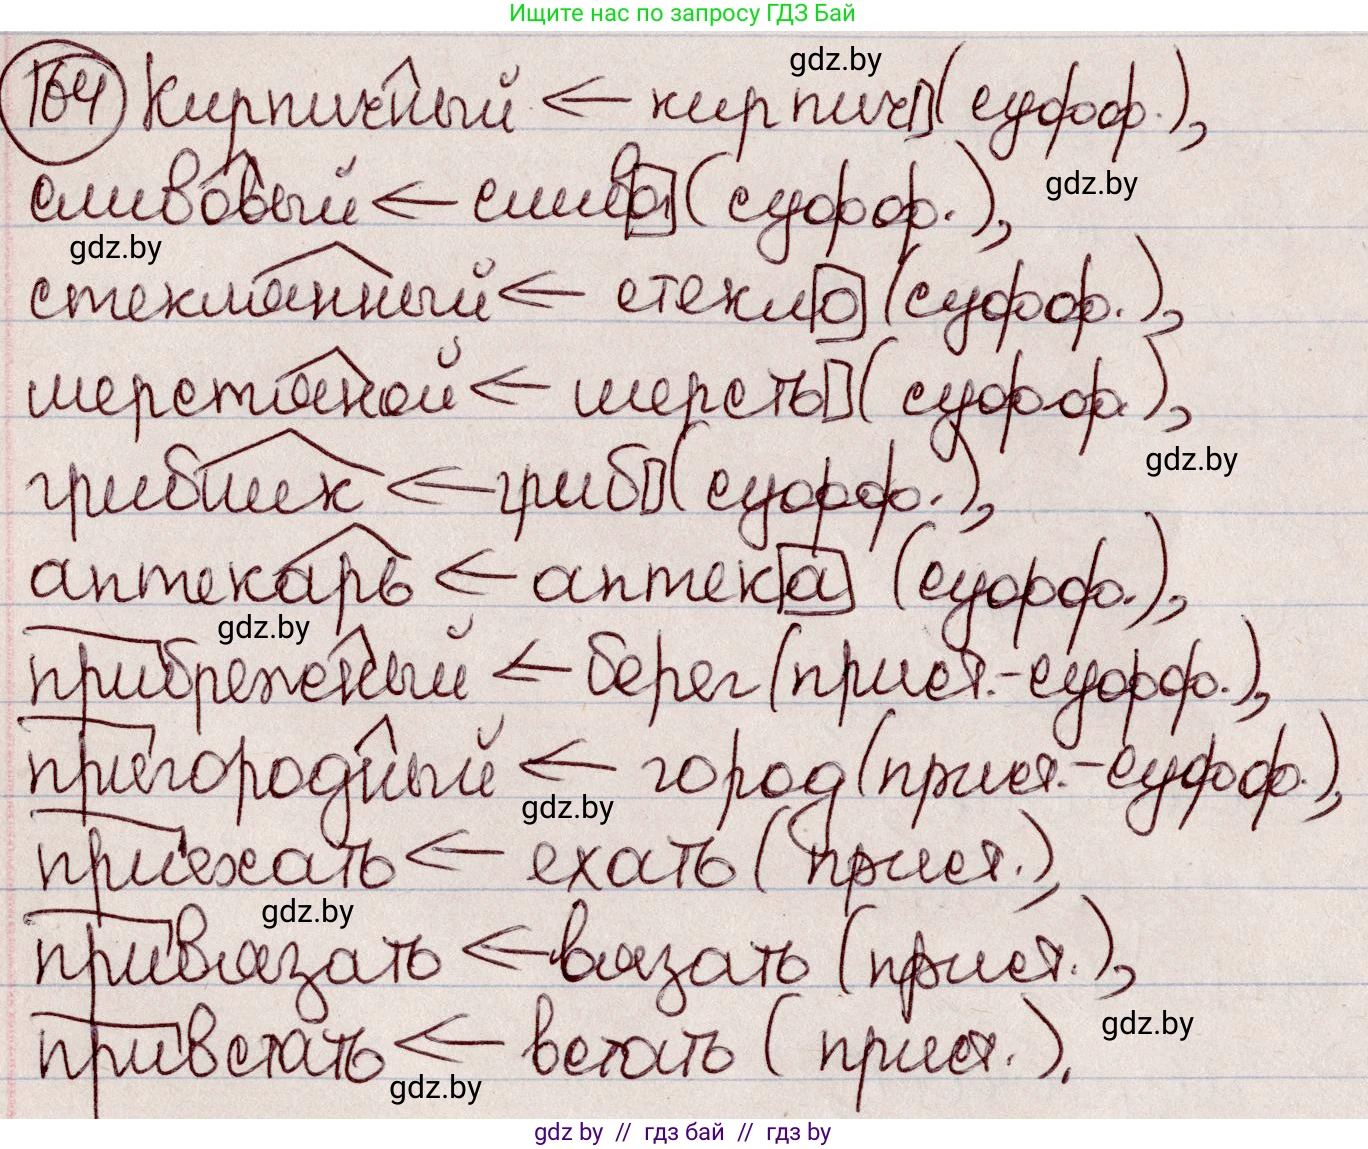 Ищите нас по запросу ГДЗ Бай
164 Кирпичный ← кирпич (суфф.),
gdz.by
сливовый ← слива (суфф.),
gdz.by
gdz.by
стеклянный ← стекло (суфф.),
шерстяной ← шерсть (суфф.),
gdz.by
грибник ← гриб (суфф.),
аптекарь ← аптека (суфф.),
gdz.by
прибрежный ← берег (прист.-суфф.),
пригородный ← город (прист.-суфф.),
gdz.by
приехать ← ехать (прист.),
gdz.by
привязать ← вязать (прист.),
gdz.by
привстать ← встать (прист.).
gdz.by
gdz by // гдз бай // гдз by